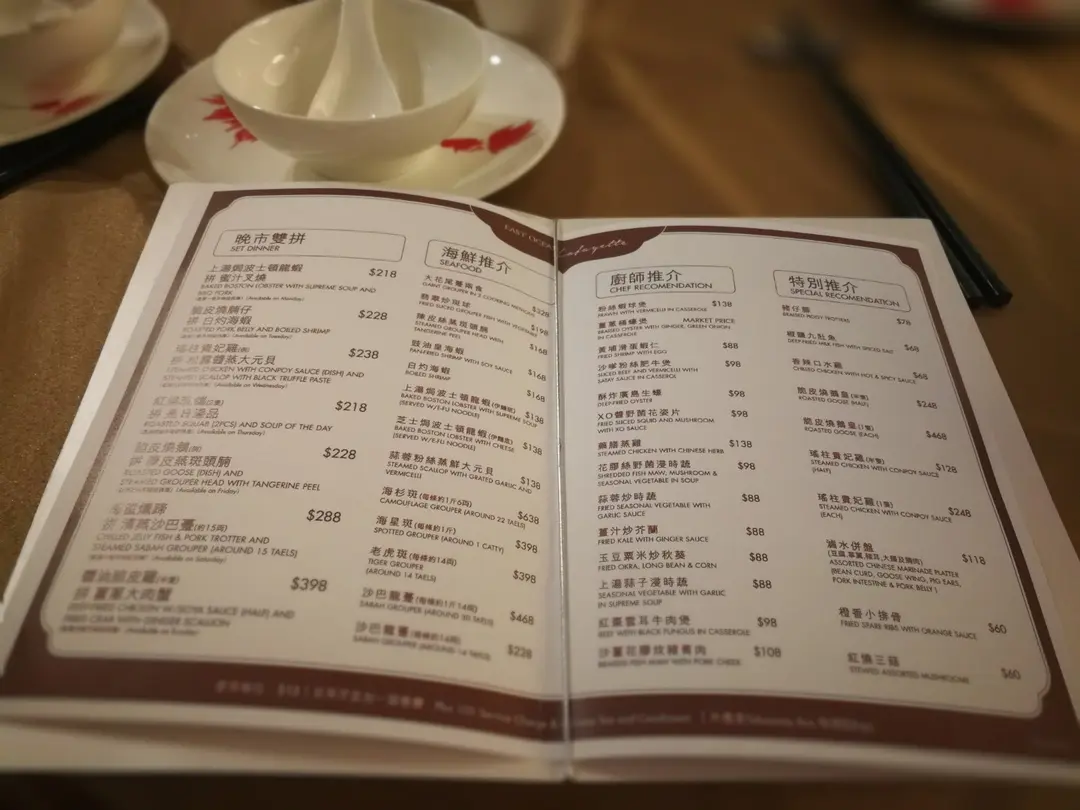 EAST OCEAN
Lafayette
晚市雙拼
SET DINNER
上湯焗波士頓龍蝦
拼 蜜汁叉燒 $218
BAKED BOSTON LOBSTER WITH SUPREME SOUP AND
BBQ PORK
(Available on Monday)
脆皮燒腩仔
拼 白灼海蝦 $228
ROASTED PORK BELLY AND BOILED SHRIMP
(Available on Tuesday)
瑤柱貴妃雞
$238
STEAMED CHICKEN WITH CONPOY SAUCE (DISH) AND
STEAMED SCALLOP WITH BLACK TRUFFLE PASTE
(Available on Wednesday)
$218
ROASTED SQUAB (2PCS) AND SOUP OF THE DAY
(Available on Thursday)
$228
ROASTED GOOSE (DISH) AND
STEAMED GROUPER HEAD WITH TANGERINE PEEL
(Available on Friday)
拼 清蒸沙巴躉(約15両) $288
CHILLED JELLY FISH & PORK TROTTER AND
STEAMED SABAH GROUPER (AROUND 15 TAELS)
(Available on Saturday)
拼 薑蔥大肉蟹 $398
DEEP-FRIED CHICKEN W/SOYA SAUCE (HALF) AND
FRIED CRAB WITH GINGER SCALLION
(Available on Sunday)
海鮮推介
SEAFOOD
大花尾躉兩食 $328
GAINT GROUPER IN 2 COOKING METHODS
翡翠炒斑球 $198
FRIED SLICED GROUPER FISH WITH VEGETABLE
陳皮絲蒸斑頭腩 $168
STEAMED GROUPER HEAD WITH
TANGERINE PEEL
豉油皇海蝦 $168
PANFRIED SHRIMP WITH SOY SAUCE
白灼海蝦 $168
BOILED SHRIMP
上湯焗波士頓龍蝦(伊麵底) $138
BAKED BOSTON LOBSTER WITH SUPREME SOUP
(SERVED W/E-FU NOODLE)
芝士焗波士頓龍蝦(伊麵底) $138
BAKED BOSTON LOBSTER WITH CHEESE
(SERVED W/E-FU NOODLE)
蒜蓉粉絲蒸鮮大元貝 $138
STEAMED SCALLOP WITH GRATED GARLIC AND
VERMICELLI
海杉斑(每條約1斤6両) $638
CAMOUFLAGE GROUPER (AROUND 22 TAELS)
海星斑(每條約1斤) $398
SPOTTED GROUPER (AROUND 1 CATTY)
老虎斑(每條約14両) $398
TIGER GROUPER
(AROUND 14 TAELS)
沙巴龍躉(每條約1斤14両) $468
SABAH GROUPER (AROUND 30 TAELS)
沙巴龍躉(每條約14両) $228
SABAH GROUPER (AROUND 14 TAELS)
廚師推介
CHEF RECOMENDATION
粉絲蝦球煲 $138
PRAWN WITH VERMICELLI IN CASSEROLE
薑蔥焗蠔煲 MARKET PRICE
BRAISED OYSTER WITH GINGER, GREEN ONION
IN CASSEROLE
黃埔滑蛋蝦仁 $88
FRIED SHRIMP WITH EGG
沙嗲粉絲肥牛煲 $98
SLICED BEEF AND VERMICELLI WITH
SATAY SAUCE IN CASSEROLE
酥炸廣島生蠔 $98
DEEP-FRIED OYSTER
XO醬野菌花姿片 $98
FRIED SLICED SQUID AND MUSHROOM
WITH XO SAUCE
藥膳蒸雞 $138
STEAMED CHICKEN WITH CHINESE HERB
花膠絲野菌浸時蔬 $98
SHREDDED FISH MAW, MUSHROOM &
SEASONAL VEGETABLE IN SOUP
蒜蓉炒時蔬 $88
FRIED SEASONAL VEGETABLE WITH
GARLIC SAUCE
薑汁炒芥蘭 $88
FRIED KALE WITH GINGER SAUCE
玉豆粟米炒秋葵 $88
FRIED OKRA, LONG BEAN & CORN
上湯蒜子浸時蔬 $88
SEASONAL VEGETABLE WITH GARLIC
IN SUPREME SOUP
紅棗雲耳牛肉煲 $98
BEEF WITH BLACK FUNGUS IN CASSEROLE
$108
BRAISED FISH MAW WITH PORK CHEEK
特別推介
SPECIAL RECOMENDATION
豬仔腳 $78
BRAISED PIGGY TROTTERS
椒鹽九肚魚 $68
DEEP-FRIED MILK FISH WITH SPICED SALT
香辣口水雞 $68
CHILLED CHICKEN WITH HOT & SPICY SAUCE
脆皮燒鵝皇(半隻) $248
ROASTED GOOSE (HALF)
脆皮燒鵝皇(1隻) $468
ROASTED GOOSE (EACH)
瑤柱貴妃雞(半隻) $128
STEAMED CHICKEN WITH CONPOY SAUCE
(HALF)
瑤柱貴妃雞(1隻) $248
STEAMED CHICKEN WITH CONPOY SAUCE
(EACH)
滷水併盤 $118
ASSORTED CHINESE MARINADE PLATTER
(BEAN CURD, GOOSE WING, PIG EARS,
PORK INTESTINE & PORK BELLY)
橙香小排骨 $60
FRIED SPARE RIBS WITH ORANGE SAUCE
紅燒三菇 $60
STEWED ASSORTED MUSHROOMS
Plus 10% Service Charge & Tea and Condiment